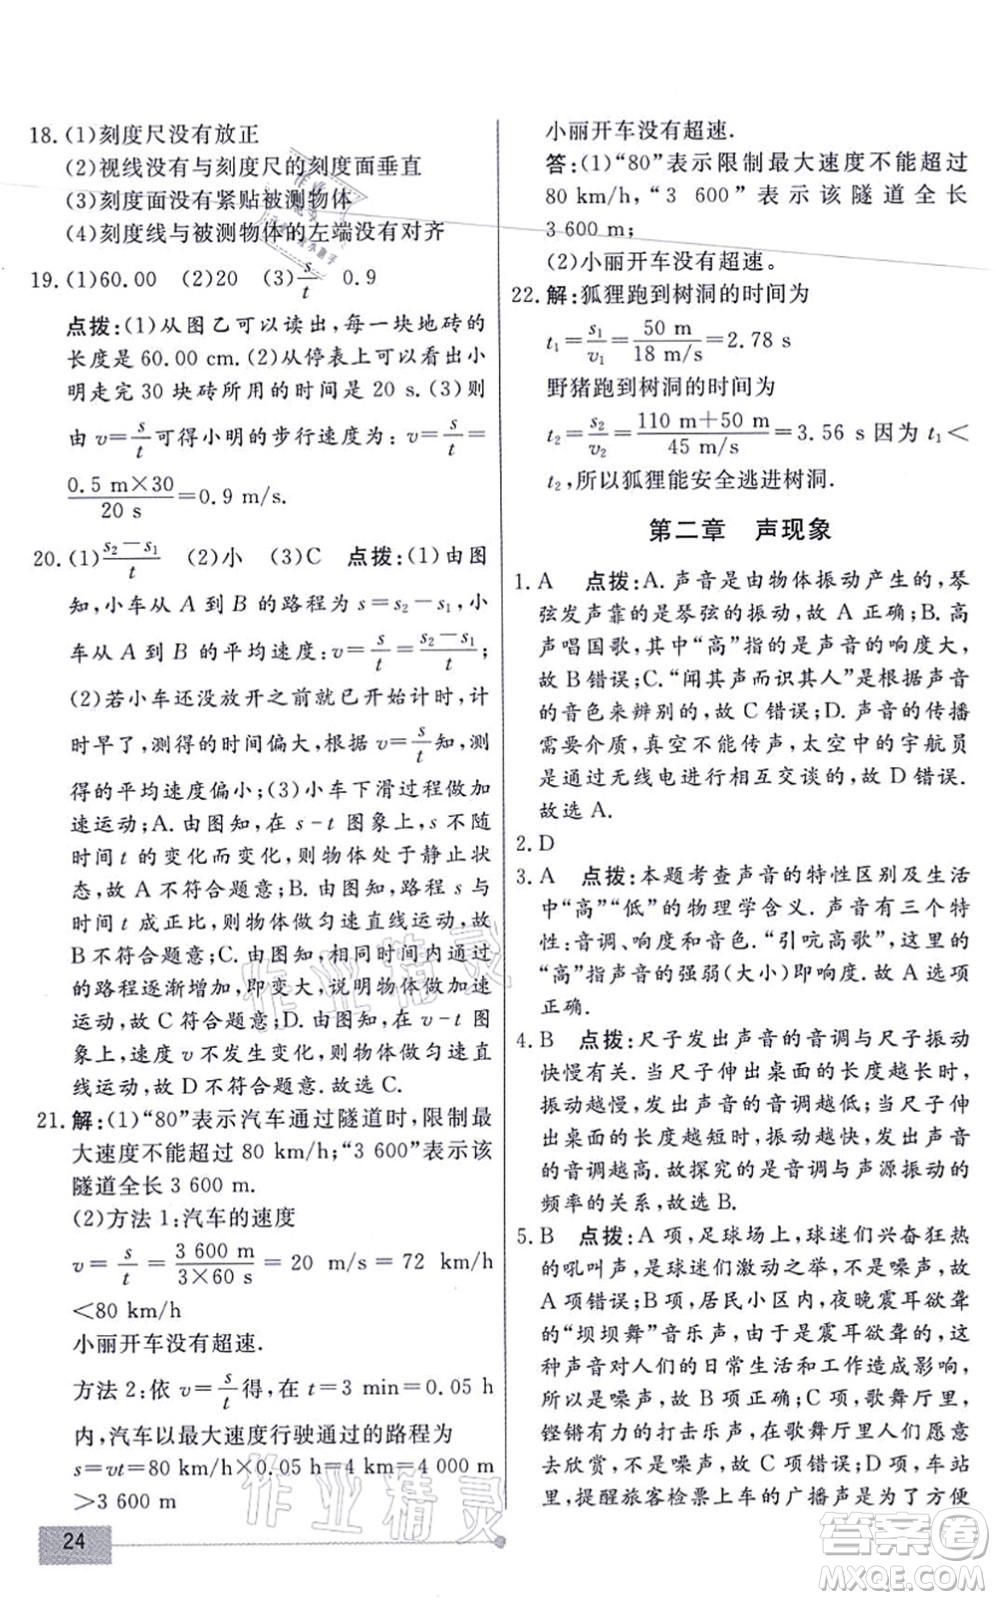 18. (1)刻度尺没有放正
(2)视线没有与刻度尺的刻度面垂直
(3)刻度面没有紧贴被测物体
(4)刻度线与被测物体的左端没有对齐
19. (1)60.00 (2)20 (3)s/t 0.9
点拨:(1)从图乙可以读出,每一块地砖的
长度是 60.00 cm. (2)从停表上可以看出小
明走完 30 块砖所用的时间是 20 s. (3)则
由 v=s/t可得小明的步行速度为: v=s/t=
0.5 m×30/20 s=0.9 m/s.
20. (1)s2-s1/t (2)小 (3)C 点拨:(1)由图
知,小车从 A 到 B 的路程为 s=s2-s1,小
车从 A 到 B 的平均速度:v=s/t=s2-s1/t;
(2)若小车还没放开之前就已开始计时,计
时早了,测得的时间偏大,根据 v=s/t知,测
得的平均速度偏小;(3)小车下滑过程做加
速运动;A. 由图知,在 s-t 图象上,s 不随
时间 t 的变化而变化,则物体处于静止状
态,故 A 不符合题意;B. 由图知,路程 s 与
时间 t 成正比,则物体做匀速直线运动,故
B 不符合题意;C. 由图知,相同时间内通过
的路程逐渐增加,即变大,说明物体做加速
运动,故 C 符合题意;D. 由图知,在 v-t 图
象上,速度 v 不发生变化,则物体做匀速直
线运动,故 D 不符合题意.故选 C.
21. 解:(1)“80”表示汽车通过隧道时,限制最
大速度不能超过 80 km/h;“3 600”表示该
隧道全长 3 600 m.
(2)方法 1:汽车的速度
v=s/t=3 600 m/3×60 s=20 m/s=72 km/h
<80 km/h
小丽开车没有超速.
方法 2:依 v=s/t得,在 t=3 min=0.05 h
内,汽车以最大速度行驶通过的路程为
s=vt=80 km/h×0.05 h=4 km=4 000 m
>3 600 m
24
小丽开车没有超速.
答:(1)“80”表示限制最大速度不能超过
80 km/h,“3 600”表示该隧道全长
3 600 m;
(2)小丽开车没有超速。
22. 解:狐狸跑到树洞的时间为
t1=s1/v1=50 m/18 m/s=2.78 s
野猪跑到树洞的时间为
t2=s2/v2=110 m+50 m/45 m/s=3.56 s 因为 t1<
t2,所以狐狸能安全逃进树洞.
第二章 声现象
1. A 点拨:A. 声音是由物体振动产生的,琴
弦发声靠的是琴弦的振动,故 A 正确;B. 高
声唱国歌,其中“高”指的是声音的响度大,
故 B 错误;C.“闻其声而识其人”是根据声音
的音色来辨别的,故 C 错误;D. 声音的传播
需要介质,真空不能传声,太空中的宇航员
是通过无线电进行相互交谈的,故 D 错误.
故选 A.
2. D
3. A 点拨:本题考查声音的特性区别及生活
中“高”“低”的物理学含义. 声音有三个特
性:音调、响度和音色.“引吭高歌”,这里的
“高”指声音的强弱(大小)即响度. 故 A 选项
正确.
4. B 点拨:尺子发出声音的音调与尺子振动
快慢有关,当尺子伸出桌面的长度越长时,
振动越慢,发出声音的音调越低;当尺子伸
出桌面的长度越短时,振动越快,发出声音
的音调越高.故探究的是音调与声源振动的
频率的关系,故选 B.
5. B 点拨:A 项,足球场上,球迷们兴奋狂热
的吼叫声,是球迷们激动之举,不是噪声,故
A 项错误;B 项,居民小区内,夜晚震耳欲聋
的“坝坝舞”音乐声,由于是震耳欲聋的,故
这种声音对人们的日常生活和工作造成影响,
所以是噪声,故 B 项正确;C 项,歌舞厅里,
铿锵有力的打击乐声,在歌舞厅人们愿意
去欣赏,不是噪声,故 C 项错误;D 项,车站
里,提醒旅客检票上车的广播声是为了方便
作业精灵
作业精灵
答案圈
MXQE.COM